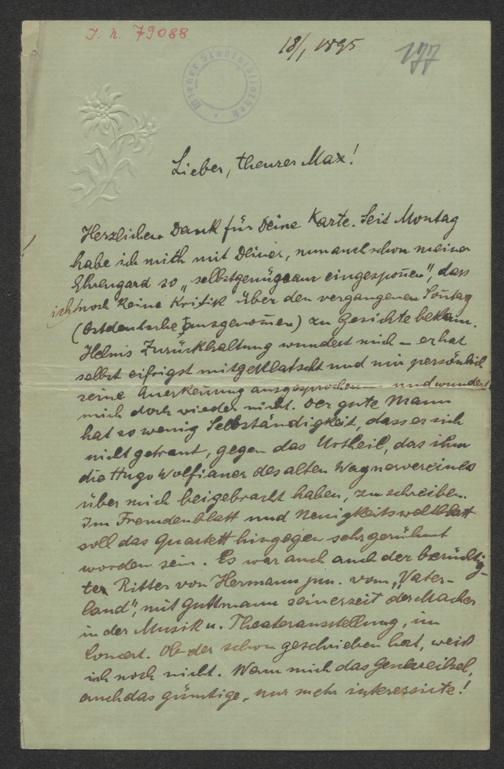 J. N. 79088
18/1 1895
177
Wiener Stadtbibliothek
Lieber, theurer Max!
Herzlichen Dank für Deine Karte. Seit Montag
habe ich mich mit Deiner, nunauch schon meiner
Ehrengard so „selbstgenügsam eingesponnen", dass
ich noch keine Kritik über den vergangenen Sonntag
(Ostdeutsche ausgenom̄en) zu Gesichte bekam.
Helms Zurückhaltung wundert mich – er hat
selbst eifrigst mitgeklatscht und mir persönlich
seine Anerkennung ausgesprochen – und wundert
mich doch wieder nicht. Der gute Mann
hat so wenig Selbständigkeit, dass er sich
nicht getraut, gegen das Urtheil, das ihm
die Hugo Wolfianer des alten Wagnervereines
über mich beigebracht haben, zu schreiben.
Im Fremdenblatt und Neuigkeitsweltblatt
soll das Quartett hingegen sehr gerühmt
worden sein. Es war auch der berüchtig-
ter Ritter von Hermann jun. vom „Vater-
land", mit Guttmann seinerzeit der Macher
in der Musik u. Theaterausstellung, im
Concert. Ob der schon geschrieben hat, weiß
ich noch nicht. Wenn mich das
auch das günstige, nur mehr interessirte!